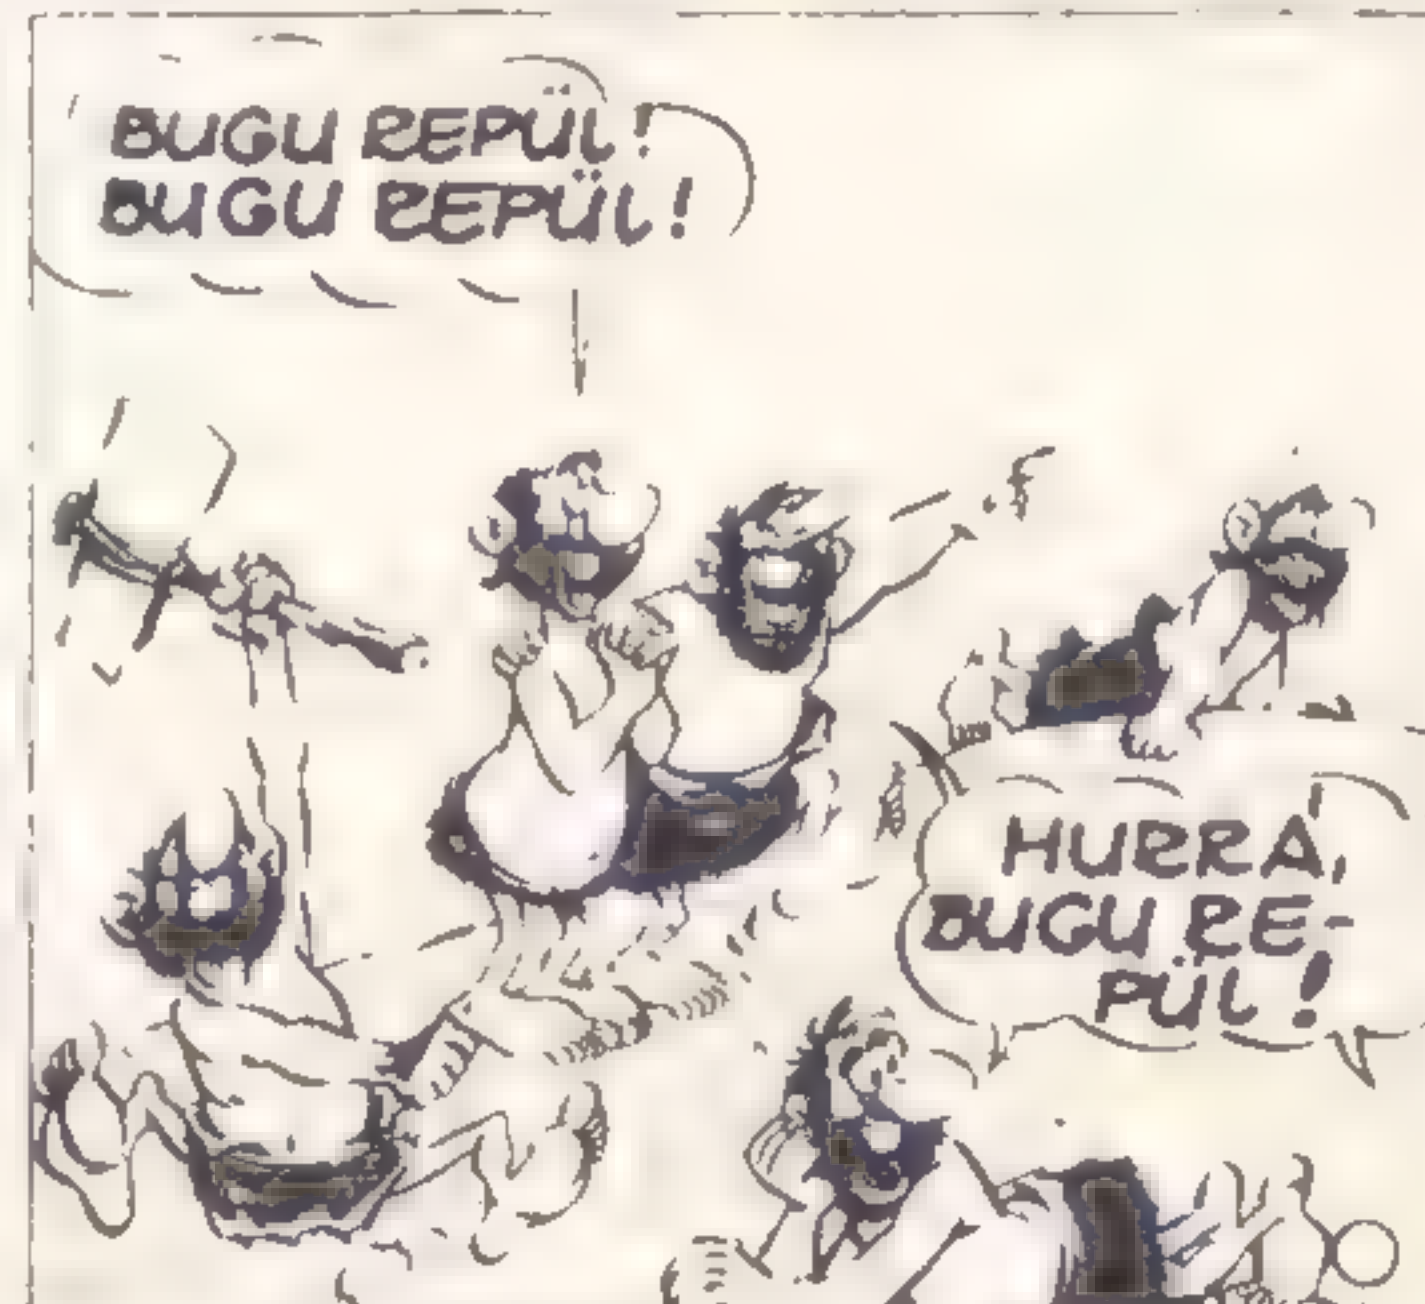 BUGU REPÜL!
BUGU REPÜL!
HURRA,
BUGU RE-
PÜL!